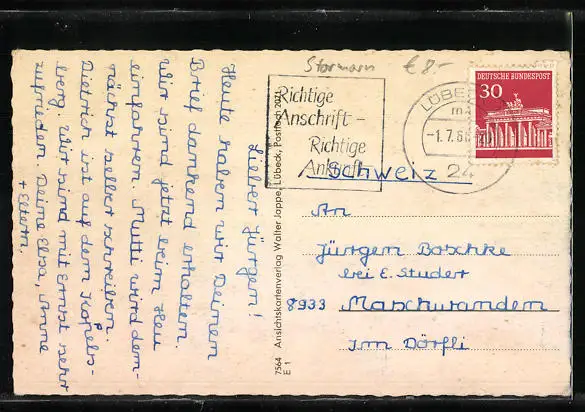 Stormarn € 8.-
Lieber Jürgen!
Heute haben wir Deinen
Brief dankend erhalten.
Wir sind jetzt beim Heu
einfahren. Mutti wird dem-
nächst selber schreiben.
Dietrich ist auf dem Kopels-
berg. Wir sind mit Ernst sehr
zufrieden. Deine Elsa, Anne
+ Eltern.
7564 Ansichtskartenverlag Walter Joppe, Lübeck, Postfach 2071
E 1
Richtige
Anschrift –
Richtige
Ankunft
LÜBECK
-1.7.66
24
DEUTSCHE BUNDESPOST
30
Schweiz
An
Jürgen Boschke
bei E. Studer
8933 Maschwanden
Im Dörfli